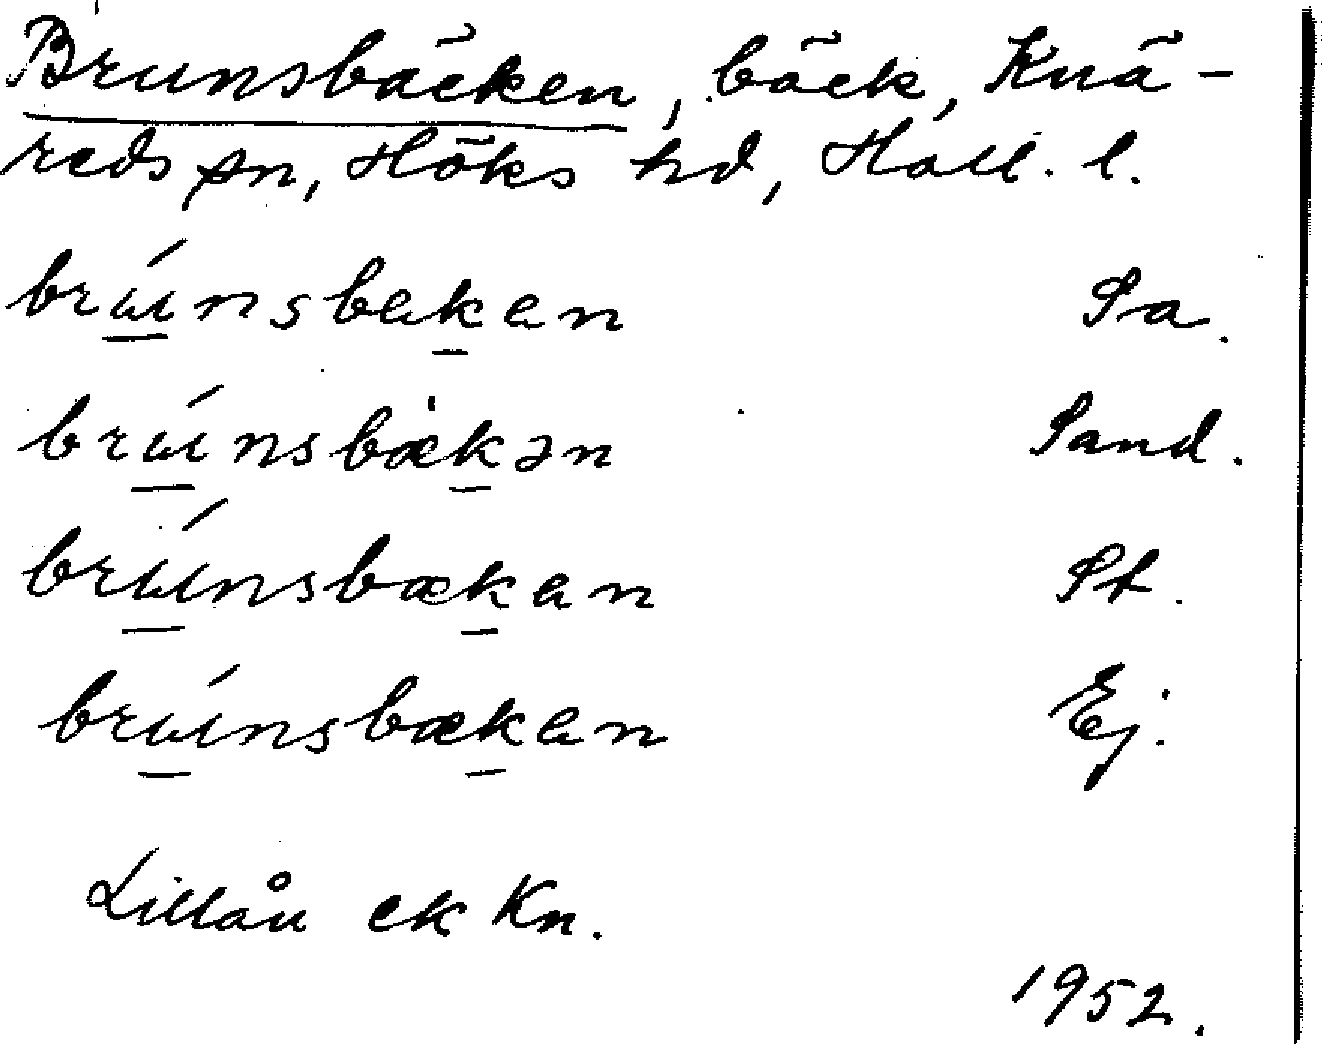 Brunsbäcken, bäck, Knä-
reds sn, Höks hd, Hall. l.
brúnsbakan Sa.
brúnsbækən Sand.
brúnsbækan St.
brúnsbækan Ej.
Lillån ek Kn.
1952.